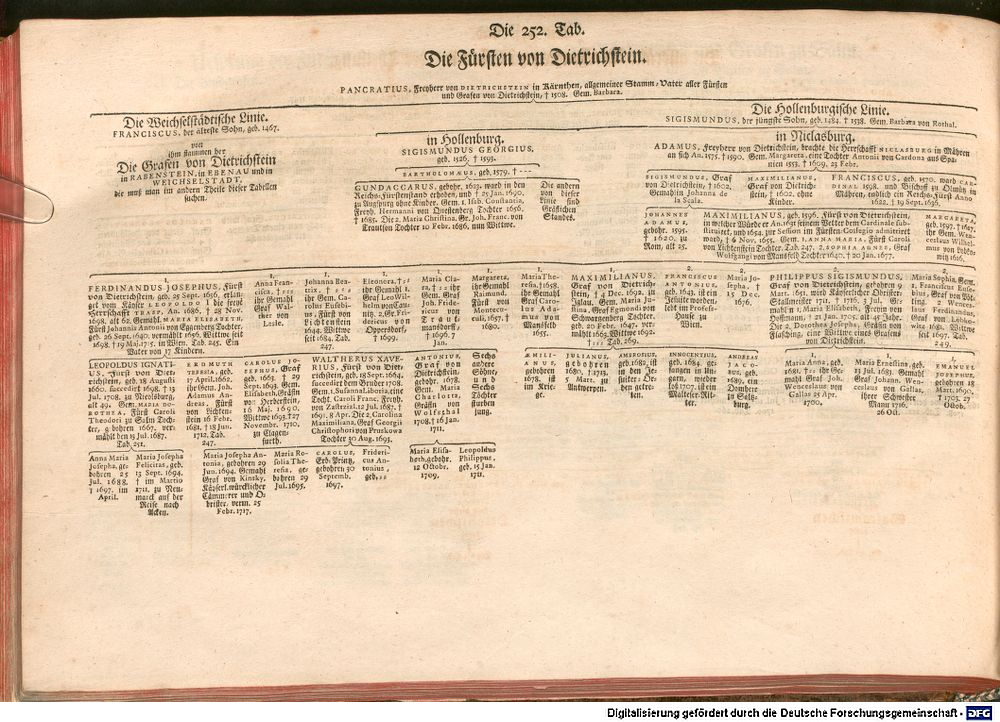 Die 252. Tab.
Die Fürsten von Dietrichstein.
PANCRATIUS, Freyherr von DIETRICHSTEIN in Kärnthen, allgemeiner Stamm-Vater aller Fürsten
und Grafen von Dietrichstein, † 1508. Gem. Barbara.
Die Weichselstädtische Linie.
FRANCISCUS, der älteste Sohn, geb. 1467.
von
ihm stammen her
Die Grafen von Dietrichstein
in RABENSTEIN, in EBENAU und in
WEICHSELSTADT,
die muß man im andern Theile dieser Tabellen
suchen.
Die Hollenburgische Linie.
SIGISMUNDUS, der jüngste Sohn, geb. 1484. † 1538. Gem. Barbara von Rothal.
in Hollenburg.
SIGISMUNDUS GEORGIUS,
geb. 1526, † 1593.
BARTHOLOMÆUS, geb. 1579, † ---
GUNDACCARUS, gebohr. 1623. ward in den
Reichs-Fürstenstand erhoben, und † 25 Jan. 1690.
zu Augspurg ohne Kinder. Gem. 1. Isab. Constantia,
Freyh. Hermanni von Questenberg Tochter 1656.
† 1685. Die 2. Maria Christina, Gr. Joh. Franc. von
Trautson Tochter 10 Febr. 1686. nun Wittwe.
Die andern
von dieser
Linie sind
Gräflichen
Standes.
in Niclasburg.
ADAMUS, Freyherr von Dietrichstein, brachte die Herrschafft NICLASBURG in Mähren
an sich An. 1575. † 1590. Gem. Margareta, eine Tochter Antonii von Cardona aus Spa-
nien 1553. † 1609, 23 Febr.
SIGISMUNDUS, Graf
von Dietrichstein, † 1602.
Gemahlin Johanna de
la Scala.
MAXIMILIANUS,
Graf von Dietrich-
stein, † 1602. ohne
Kinder.
FRANCISCUS, geb. 1570. ward CAR-
DINAL 1598. und Bischof zu Olmütz in
Mähren, endlich ein Reichs-Fürst Anno
1622. † 19 Sept. 1636.
JOHANNES
ADAMUS,
gebohr. 1595.
† 1620. zu
Rom, alt 25.
MAXIMILIANUS, geb. 1596. Fürst von Dietrichstein,
in welcher Würde er An. 1631 seinem Vetter dem Cardinale sub-
stituiret, und 1654. zur Session im Fürsten-Collegio admittiret
ward, † 6 Nov. 1655. Gem. 1. ANNA MARIA, Fürst Caroli
von Lichtenstein Tochter. Tab. 247. 2. SOPHIA AGNES, Graf
Wolfgangi von Mansfeld Tochter 1640. † 20 Jan. 1677.
MARGARETA,
geb. 1597. † 1617,
ihr Gem. Wen-
ceslaus Wilhel-
mus von Lobko-
witz 1616.
1.
FERDINANDUS JOSEPHUS, Fürst
von Dietrichstein, geb. 25 Sept. 1636, erlan-
get vom Kayser LEOPOLDO I die freye
Herrschafft TRASP, An. 1686. † 28 Nov.
1698. alt 62. Gemahl. MARIA ELISABETH,
Fürst Johannis Antonii von Eggenberg Tochter,
geb. 26 Sept. 1640. vermählt 1656. Wittwe seit
1698 † 19 Maj. 1715. in Wien. Tab. 245. Ein
Vater von 17 Kindern.
1.
Anna Fran-
cisca, † ---
ihr Gemahl
Graf Wal-
ter von
Lesle.
1.
Johanna Bea-
trix, † ---
ihr Gem. Ca-
rolus Eusebi-
us, Fürst von
Lichtenstein
1644. Wittwe
seit 1684. Tab.
247.
1.
Eleonora, † --
ihr Gemahl 1.
Graf Leo Wil-
helm von Cau-
nitz. 2. Gr. Fri-
dericus von
Oppersdorf,
† 1699.
1.
Maria Cla-
ra, † -- ihr
Gem. Graf
Joh. Fride-
ricus von
Traut-
mansdorff,
† 1696. 7
Jan.
1.
Margareta,
ihr Gemahl
Raimund.
Fürst von
Montecu-
culi, 1657. †
1680.
1.
Maria The-
resia, † 1658.
ihr Gemahl
Graf Caro-
lus Ada-
mus von
Mansfeld
1655.
1.
MAXIMILIANUS,
Graf von Dietrich-
stein, † 4 Dec. 1692. zu
Iglau. Gem. Maria Ju-
stina, Graf Egmondi von
Schwarzenberg Tochter,
geb. 20 Febr. 1647. ver-
mählt 1665. Wittwe 1692.
† --- Tab. 269.
2.
FRANCISCUS
ANTONIUS,
geb. 1643. ist ein
Jesuite worden,
lebt im Profess-
Hause zu
Wien.
2.
Maria Jo-
sepha, †
15 Dec.
1676.
2.
PHILIPPUS SIGISMUNDUS,
Graf von Dietrichstein, gebohren 9
Mart. 1651. wird Kayserlicher Obrister-
Stallmeister 1711. † 1716, 3 Jul. Ge-
mahl 1. Maria Elisabeth, Freyin von
Hoffmann, † 21 Jan. 1705. alt 45 Jahr.
Die 2. Dorothea Josepha, Gräfin von
Flasching, eine Wittwe eines Grafens
von Dietrichstein.
2.
Maria Sophia, Gem.
1. Franciscus Euse-
bius, Graf von Pöt-
ting. 2. Wences-
laus Ferdinand.
Graf von Lobko-
witz 1681. Wittwe
seit 1697. Tab.
249.
LEOPOLDUS IGNATI-
US, Fürst von Diet-
richstein, geb. 18 Augusti
1660. succedirt 1698. † 13
Jul. 1708. zu Nicolsburg,
alt 49. Gem. MARIA DO-
ROTHEA, Fürst Caroli
Theodori zu Salm Toch-
ter, gebohren 1667. ver-
mählt den 15 Jul. 1687.
Tab. 251.
ERDMUTH
TERESIA, geb.
17 April. 1662.
ihr Gem. Joh.
Adamus An-
dreas, Fürst
von Lichten-
stein 16 Febr.
1681. † 18 Jun.
1712. Tab.
247.
CAROLUS JO-
SEPHUS, Graf
geb. 1663, † 29
Sept. 1693. Gem.
Elisabeth, Gräfin
von Herberstein,
16 Maj. 1690.
Wittwe 1693. † 27
Novembr. 1710.
zu Clagen-
furth.
WALTHERUS XAVE-
RIUS, Fürst von Diet-
richstein, geb. 18 Sept. 1664.
succediret dem Bruder 1708.
Gem. 1. Susanna Liboria, eine
Tocht. Caroli Franc. Freyh.
von Zastrzizl, 12 Jul. 1687. †
1691. 8 Apr. Die 2. Carolina
Maximiliana, Graf Georgii
Christophori von Pruskowa
Tochter 30 Aug. 1693.
ANTONIUS,
Graf von
Dietrichstein,
gebohr. 1678.
Gem. Maria
Charlotta,
Gräfin von
Wolfsthal
1708. † 16 Jan.
1711.
Sechs
andere
Söhne,
und
Sechs
Töchter
sturben
jung.
ÆMILI-
ANUS,
gebohren
1678. ist
im Krie-
ge.
JULIANUS,
gebohren
1680, † 1713.
5 Mart. zu
Antwerpen.
AMBROSIUS,
geb. 1682, ist
in den Je-
suiter-Or-
den getre-
ten.
INNOCENTIUS,
geb. 1684. ge-
fangen in Un-
garn, wieder
los 1707. ist ein
Maltheser-Rit-
ter.
ANDREAS
JACO-
BUS, geb.
1689. ein
Domherr
zu Saltz-
burg.
1.
Maria Anna, geb.
1681, † -- ihr Ge-
mahl Graf Joh.
Wenceslaus von
Gallas 25 Apr.
1700.
1.
Maria Ernestina, geb.
13 Jul. 1683. Gemahl
Graf Johann. Wen-
ceslaus von Gallas,
ihrer Schwester
Mann 1716,
26 Oct.
1.
EMANUEL
JOSEPHUS,
gebohren 18
Mart. 1690,
† 1703. 27
Octob.
Anna Maria
Josepha, ge-
bohren 25
Jul. 1688.
† 1697. im
April.
Maria Josepha
Felicitas, geb.
13 Sept. 1694.
† im Martio
1711. zu Neu-
marck auf der
Reise nach
Acken.
Maria Josepha An-
tonia, gebohren 29
Jun. 1694. Gemahl
Graf von Kinsky,
Kayserl. würcklicher
Cämmerer und O-
brister. verm. 25
Febr. 1717.
Maria Ro-
solia There-
sia, ge-
bohren 29
Jul. 1695.
CAROLUS,
Erb-Printz,
gebohren 30
Septemb.
1697.
Frideri-
cus An-
tonius,
geb. --
Maria Elisa-
beth, gebohr.
12 Octobr.
1709.
Leopoldus
Philippus,
geb. 15 Jan.
1711.
Digitalisierung gefördert durch die Deutsche Forschungsgemeinschaft - DFG